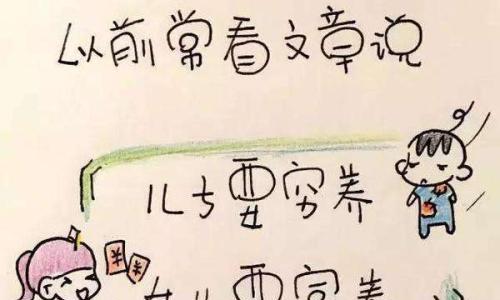 以前常看文章说
儿子要穷养
¥ ¥
女儿要富养